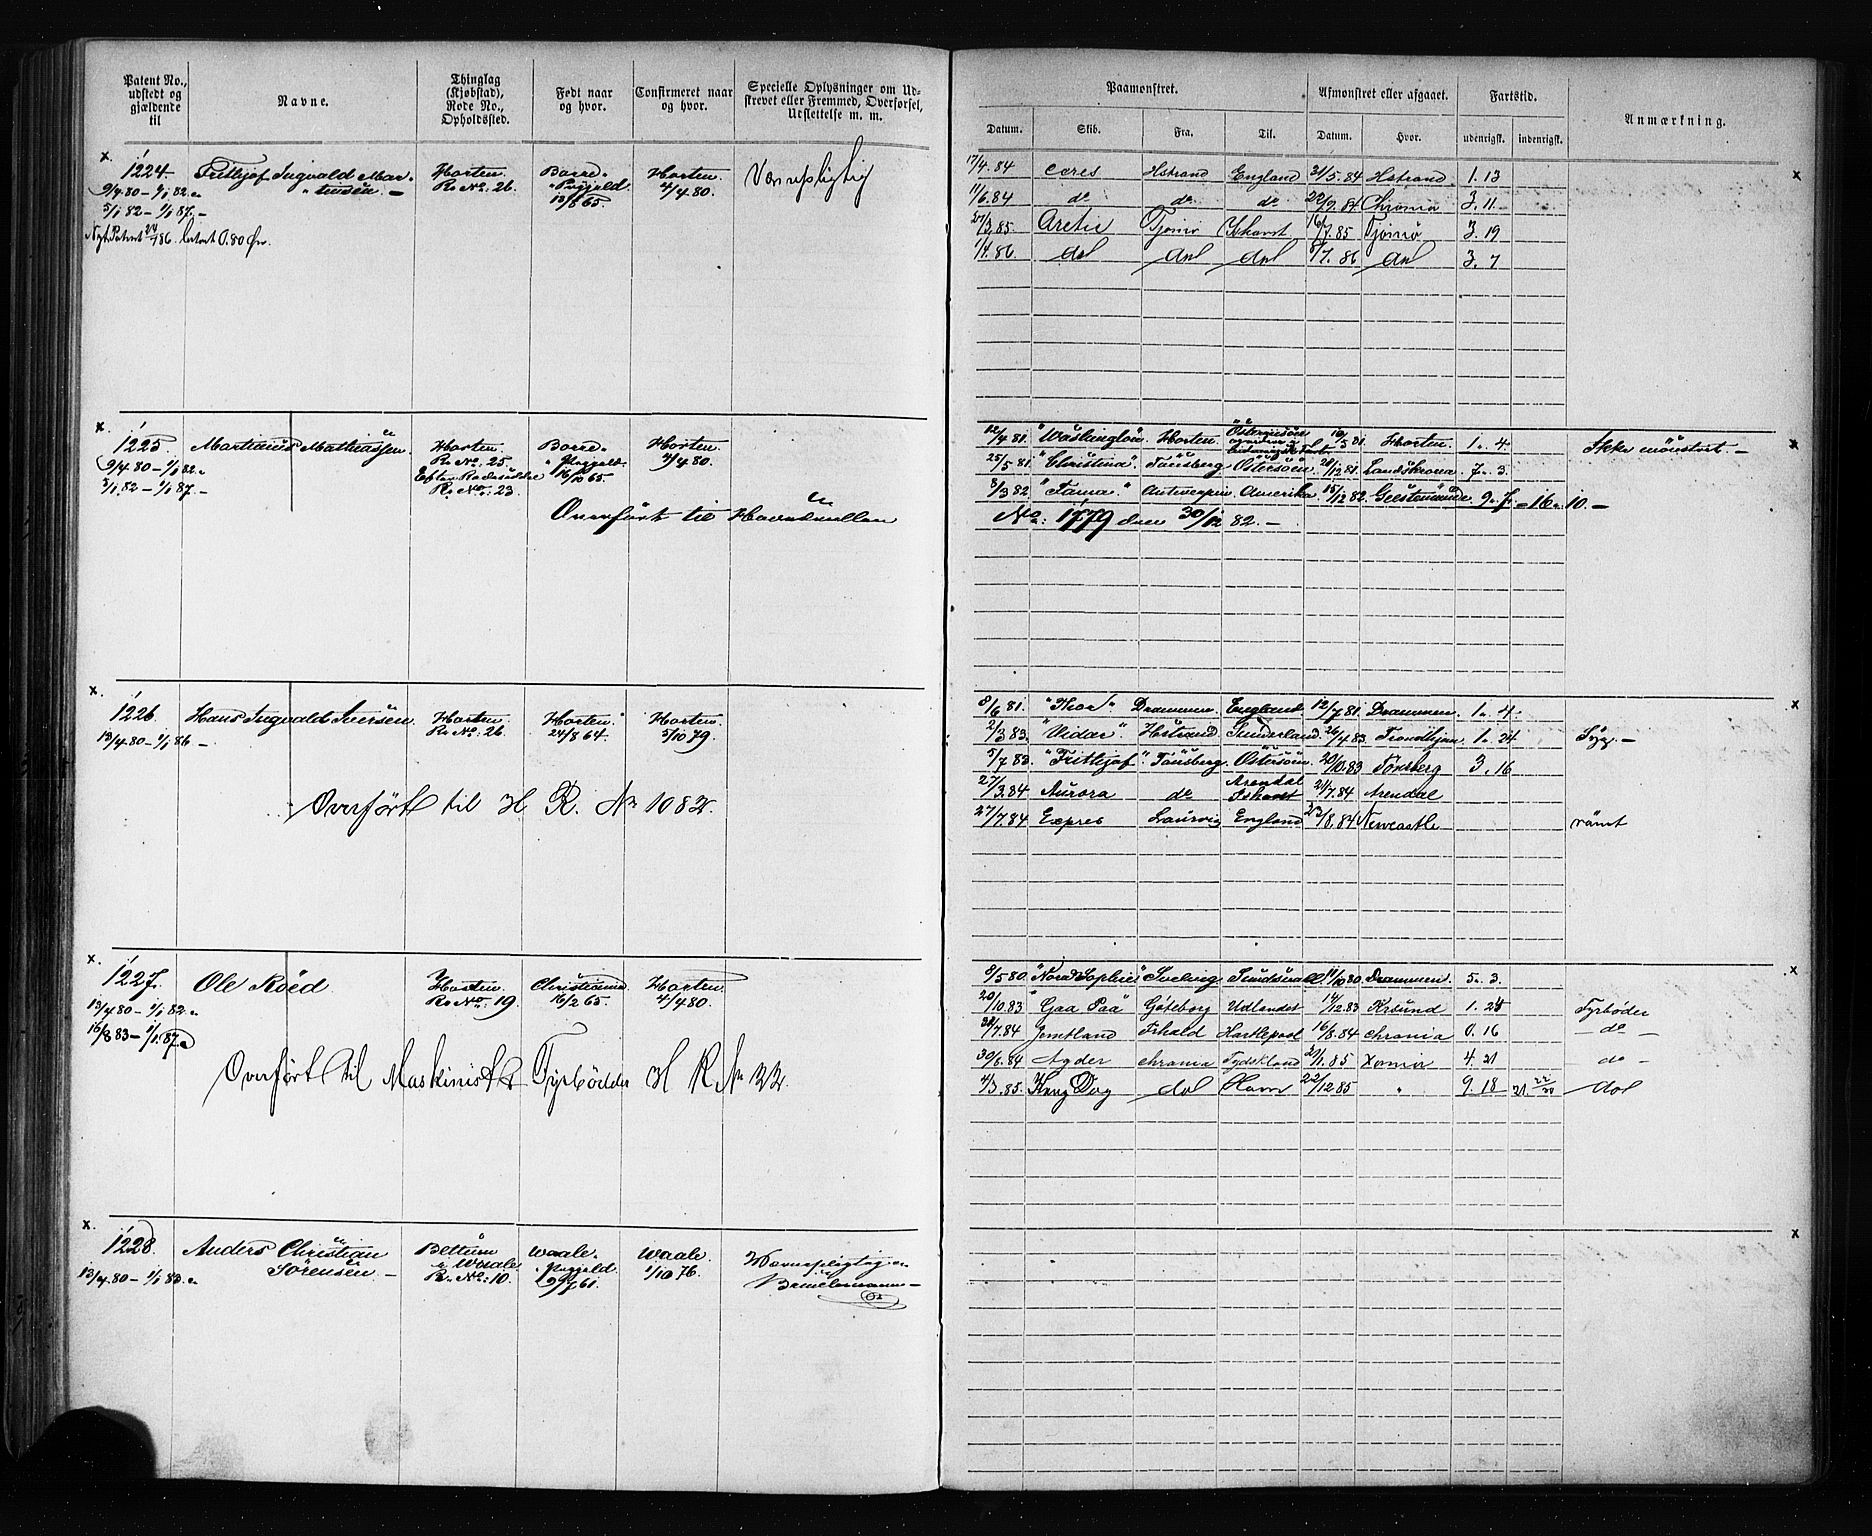 Patent No., udstedt og gjældende til
Navne.
Thinglag (Kjøbstad), Rode No., Opholdssted.
Født naar og hvor.
Confirmeret naar og hvor.
Specielle Oplysninger om Udskrevet eller Fremmed, Overførsel, Udslettelse m. m.
Paamønstret.
Afmønstret eller afgaaet.
Fartstid.
Anmærkning.
Datum. Skib. Fra. Til. Datum. Hvor. udenrigsk. indenrigsk.
x.
1224
9/4 80 – 1/1 82.
5/1 82 – 1/1 87. –
Frithjof Ingvald Mar-
tinsen. –
Horten.
R. No. 26.
Borre
Prgjeld
13/8 65.
Horten.
4/4 80.
Værnepligtig
17/4. 84 Ceres Hstrand England 31/5. 84 Hstrand. 1. 13
x
11/6. 84 do do do 22/9. 84 Chrania 3. 11
27/3. 85. Arctic Tjømø Ishavet 16/7. 85 Tjømø 3. 19
1/4. 86 dol dol dol 8/7. 86 dol 3. 7
x.
1225
9/4 80 – 1/1 82.
5/1 82 – 1/1 87. –
Martinius Mathiassen.
Horten.
R. No: 25.
R. No: 23.
Borre
Prgjeld.
16/10 65.
Horten.
4/4 80.
Overført til Hovedrullen
12/4 81. "Washington" Horten. Östersöen 16/5 81. Horten. 1. 4. Ikke mönstret. –
x
25/5 81. "Christina" Tönsberg. Östersöen 28/12 81. Landskrona. 7. 3.
8/3 82 "Fama" Antwerpen. Amerika. 15/12 82. Geestemünde 9. 7. = 16. 10. –
No: 1779 den 30/12 82. –
x.
1226.
13/4 80 – 1/1 86 –
Hans Ingvald Iversen.
Horten.
R. No: 26.
Horten.
24/8 64.
Horten.
5/10 79.
Overført til H R. No 1082.
8/6 81. "Thor" Drammen. England 12/7 81. Drammen. 1. 4.
x
2/3 83. "Vidar" Hstrand. Sunderland. 26/4 83. Trondhjem. 1. 24 Syg. –
5/7 83. "Frithjof" Tönsberg. Östersöen. 20/10. 83 Tønsberg 3. 16
27/3. 84 Aurora do Arendal Ishavet 21/7. 84 Arendal
27/7. 84 Expres Laurvig England 23/8. 84 Newcastle rømt
x.
1227.
13/4 80 – 1/1 82.
16/8 83 – 1/1. 87.
Ole Röed
Horten.
R. No: 19.
Christiania.
16/2 65.
Horten.
4/4 80.
Overført til Maskinist & Fyrbøder H R No 32.
8/5 80. "Nora Sophie" Svelvig. Sundsvall 11/10 80. Drammen. 5. 3.
x
20/10. 83 "Gaa Paa" Göteborg Udlandet 14/12. 83 Krsund 1. 24 Fyrbøder
30/7. 84 Jemtland Frhald Hartlepool 16/8. 84 chrania 0. 16 – do –
30/8. 84 Agder chrania Tydskland 20/1. 85 Xania 4. 21 do –
4/3. 85. Kong Dag dol Havre 22/12 85 " 9. 18 dol
x.
1228.
13/4. 80 – 1/1 83.
Anders Christian
Sörensen. –
Beltum
i Waale
R. No: 10.
Waale.
Prgjeld
9/7 61.
Waale.
1/10 76.
Værnepligtig
x